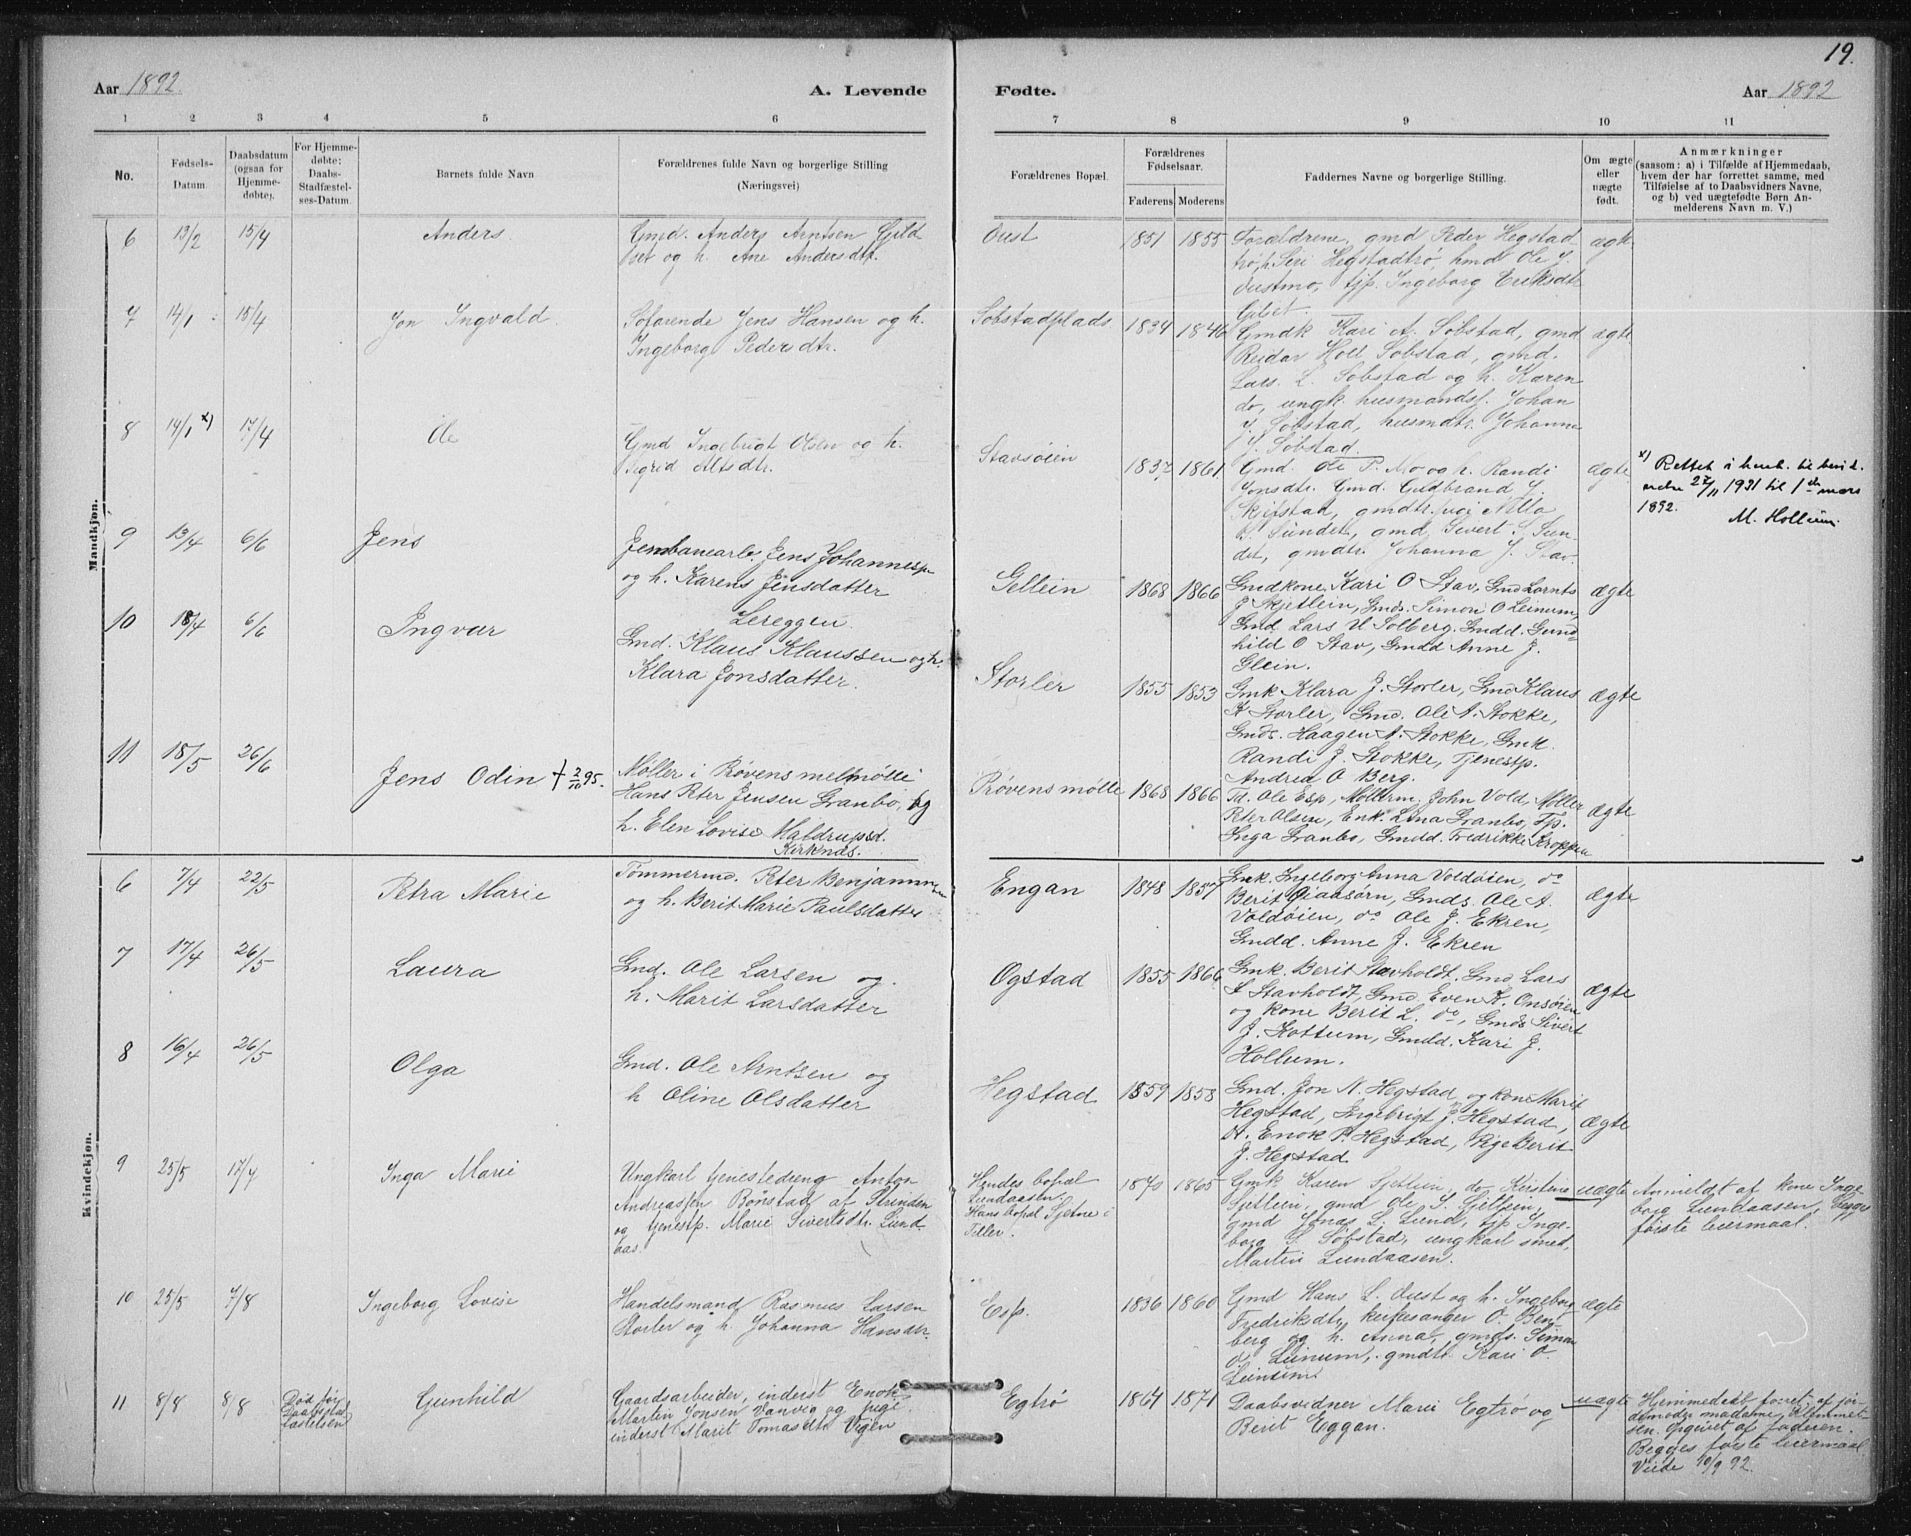 19.
Aar 1892.
A. Levende
Fødte.
Aar 1892
1 2 3 4 5 6 7 8 9 10 11
No.
Fødsels-
Datum.
Daabsdatum
(ogsaa for
Hjemme-
døbte).
For Hjemme-
døbte:
Daabs-
Stadfæstel-
ses-Datum.
Barnets fulde Navn
Forældrenes fulde Navn og borgerlige Stilling
(Næringsvei)
Forældrenes Bopæl.
Forældrenes
Fødselsaar.
Faderens Moderens
Faddernes Navne og borgerlige Stilling.
Om ægte
eller
uægte
født.
Anmærkninger
(saasom: a) i Tilfælde af Hjemmedaab,
hvem der har forrettet samme, med
Tilføielse af to Daabsvidners Navne,
og b) ved uægtefødte Børn An-
melderens Navn m. V.)
Mandkjøn.
6 13/2 15/4 Anders
Gmd. Anders Arntsen Gild
set og h. Ane Andersdtr.
Oust 1851 1855
Forældrene, gmd Peder Hegstad
trø, h. Siri Hegstadtrø, hmd Ole J.
Oustmo, tjp. Ingeborg Eriksdtr
ægte
7 14/1 18/4 Jon Ingvald
Søfarende Jens Hansen og h.
Ingeborg Pedersdtr.
Sobstadplads 1834 1846
Gmdk Kari A. Sobstad, gmd
Reidar Holl Sobstad, gmd.
Lars L. Sobstad og h. Karen
do, ungk. husmandsf. Johan
J. Sobstad, husmdtr. Johanna
J. Sobstad.
ægte
8 14/1 x) 17/4 Ole
Gmd Ingebrigt Olsen og h.
Sigrid Altsdtr.
Stavsøien 1837 1861
Gmd. Ole P. Mo og h. Randi
Jonsdtr. Gmd. Guldbrand J.
Skjefstad, gmdtr.
Sundet, gmd Sivert S. Sun-
det, gmdtr. Johanna J. Stav.
ægte
x) Rettet i henh. til
27/11 1931 til 1ste mars
1892. M. Hollum.
9 13/4 6/6 Jens
Jernbanearb. Jens Johannesen
og h. Karen Jensdatter
Lereggen.
Gellein 1868 1866
Gmdkone Kari O Stav, Gmd Lornts
J Skjetlein, Gmds. Simon O Leinum,
Gmd. Lars U Solberg. Gmdd. Gund-
hild O Stav, Gmdd Anne J.
Glein.
ægte
10 18/4 6/6 Ingvar
Gmd. Klaus Klaussen og h.
Klara Jonsdatter.
Storler 1855 1853
Gmk Klara J. Storler, Gmd Klaus
K Storler, Gmd. Ole A. Stokke,
Gmds. Haagen A. Stokke, Gmk
Randi J. Stokke, Tjenestp.
Andrea O Berg.
ægte
11 18/5 26/6 Jens Odin † 2/10 95.
Møller i Prøvens melmølle
Hans Peter Jensen Granbo, og
h. Elen Lovise Maldrupsd.
Kirknæs.
Prøvens mølle 1868 1866
Td. Ole Esp, Møllerm. John Vold, Møller
Peter Olsen, Enk. Lina Granbo, Tjp.
Inga Granbo, Gmdd. Fredrikke Kroppen
ægte
Kvindekjøn.
6 7/4 22/5 Petra Marie
Tømmermd. Peter Benjaminsen
og h. Berit Marie Paulsdatter
Engan 1848 1857
Gmk. Ingeborg Anna Voldøien, do
Berit Gaasørn, Gmds. Ole A.
Voldøien, do Ole J. Ekren,
Gmdd. Anne J. Ekren
ægte
7 17/4 26/5 Laura
Gmd. Ole Larsen og
h. Marit Larsdatter
Ogstad 1855 1866
Gmk. Berit Stavholdt. Gmd Lars
L Stavholdt, Gmd. Even K. Onsøien
og kone Berit L. do, Gmds Sivert
J. Kottum, Gmdd. Kari J.
Hollum.
ægte
8 16/4 26/5 Olga
Gmd. Ole Arntsen og
h Oline Olsdatter
Hegstad 1859 1858
Gmd. Jon N. Hegstad og kone Marit
Hegstad, Ingebrigt J. Hegstad,
Enok P. Hegstad, Pige Berit
J. Hegstad
ægte
9 25/5 17/4 Inga Marie
Ungkarl tjenestedreng Anton
Andreassen Bønstad af Strinden
og tjenestp. Marie Sivertsdtr. Lund-
aas.
Hendes bopæl
Lundaasen.
Hans bopæl Sjetne i
Tiller.
1870 1865
Gmk Karen Sjetlein, do Kirstine
Sjetlein, gmd Ole S. Sjetlein,
gmd Jonas L. Lund, tjp Inge-
borg S. Sobstad, ungkarl smed,
Martin Lundaasen.
uægte
Anmeldt af kone Inge
borg Lundaasen, Begges
første leiermaal.
10 25/5 7/8 Ingeborg Lovise
Handelsmand Rasmus Larsen
Storler og h. Johanna Hansdtr.
Esp. 1836 1860
Gmd Hans L. Oust og h. Ingeborg
Fredriksdtr, kirkesanger O. Bent-
berg og h. Anna, gmds. Simon
O. Leinum, gmdtr. Kari O.
Leinum
ægte
11 8/8 8/8
Død før
Daabsstad
fæstelsen
Gunhild
Gaardsarbeider, inderst Enok
Martin Jonsen Vanvig og pige
inderst Marit Tomasdtr Vigen
Egtrø 1864 1871
Daabsvidner Marie Egtrø og
Berit Eggan.
uægte
Hjemmedaab forret. af jor
demoder madame Klemmet
sen. Opgivet af faderen.
Begges første leiermaal
Viede 10/9 92.